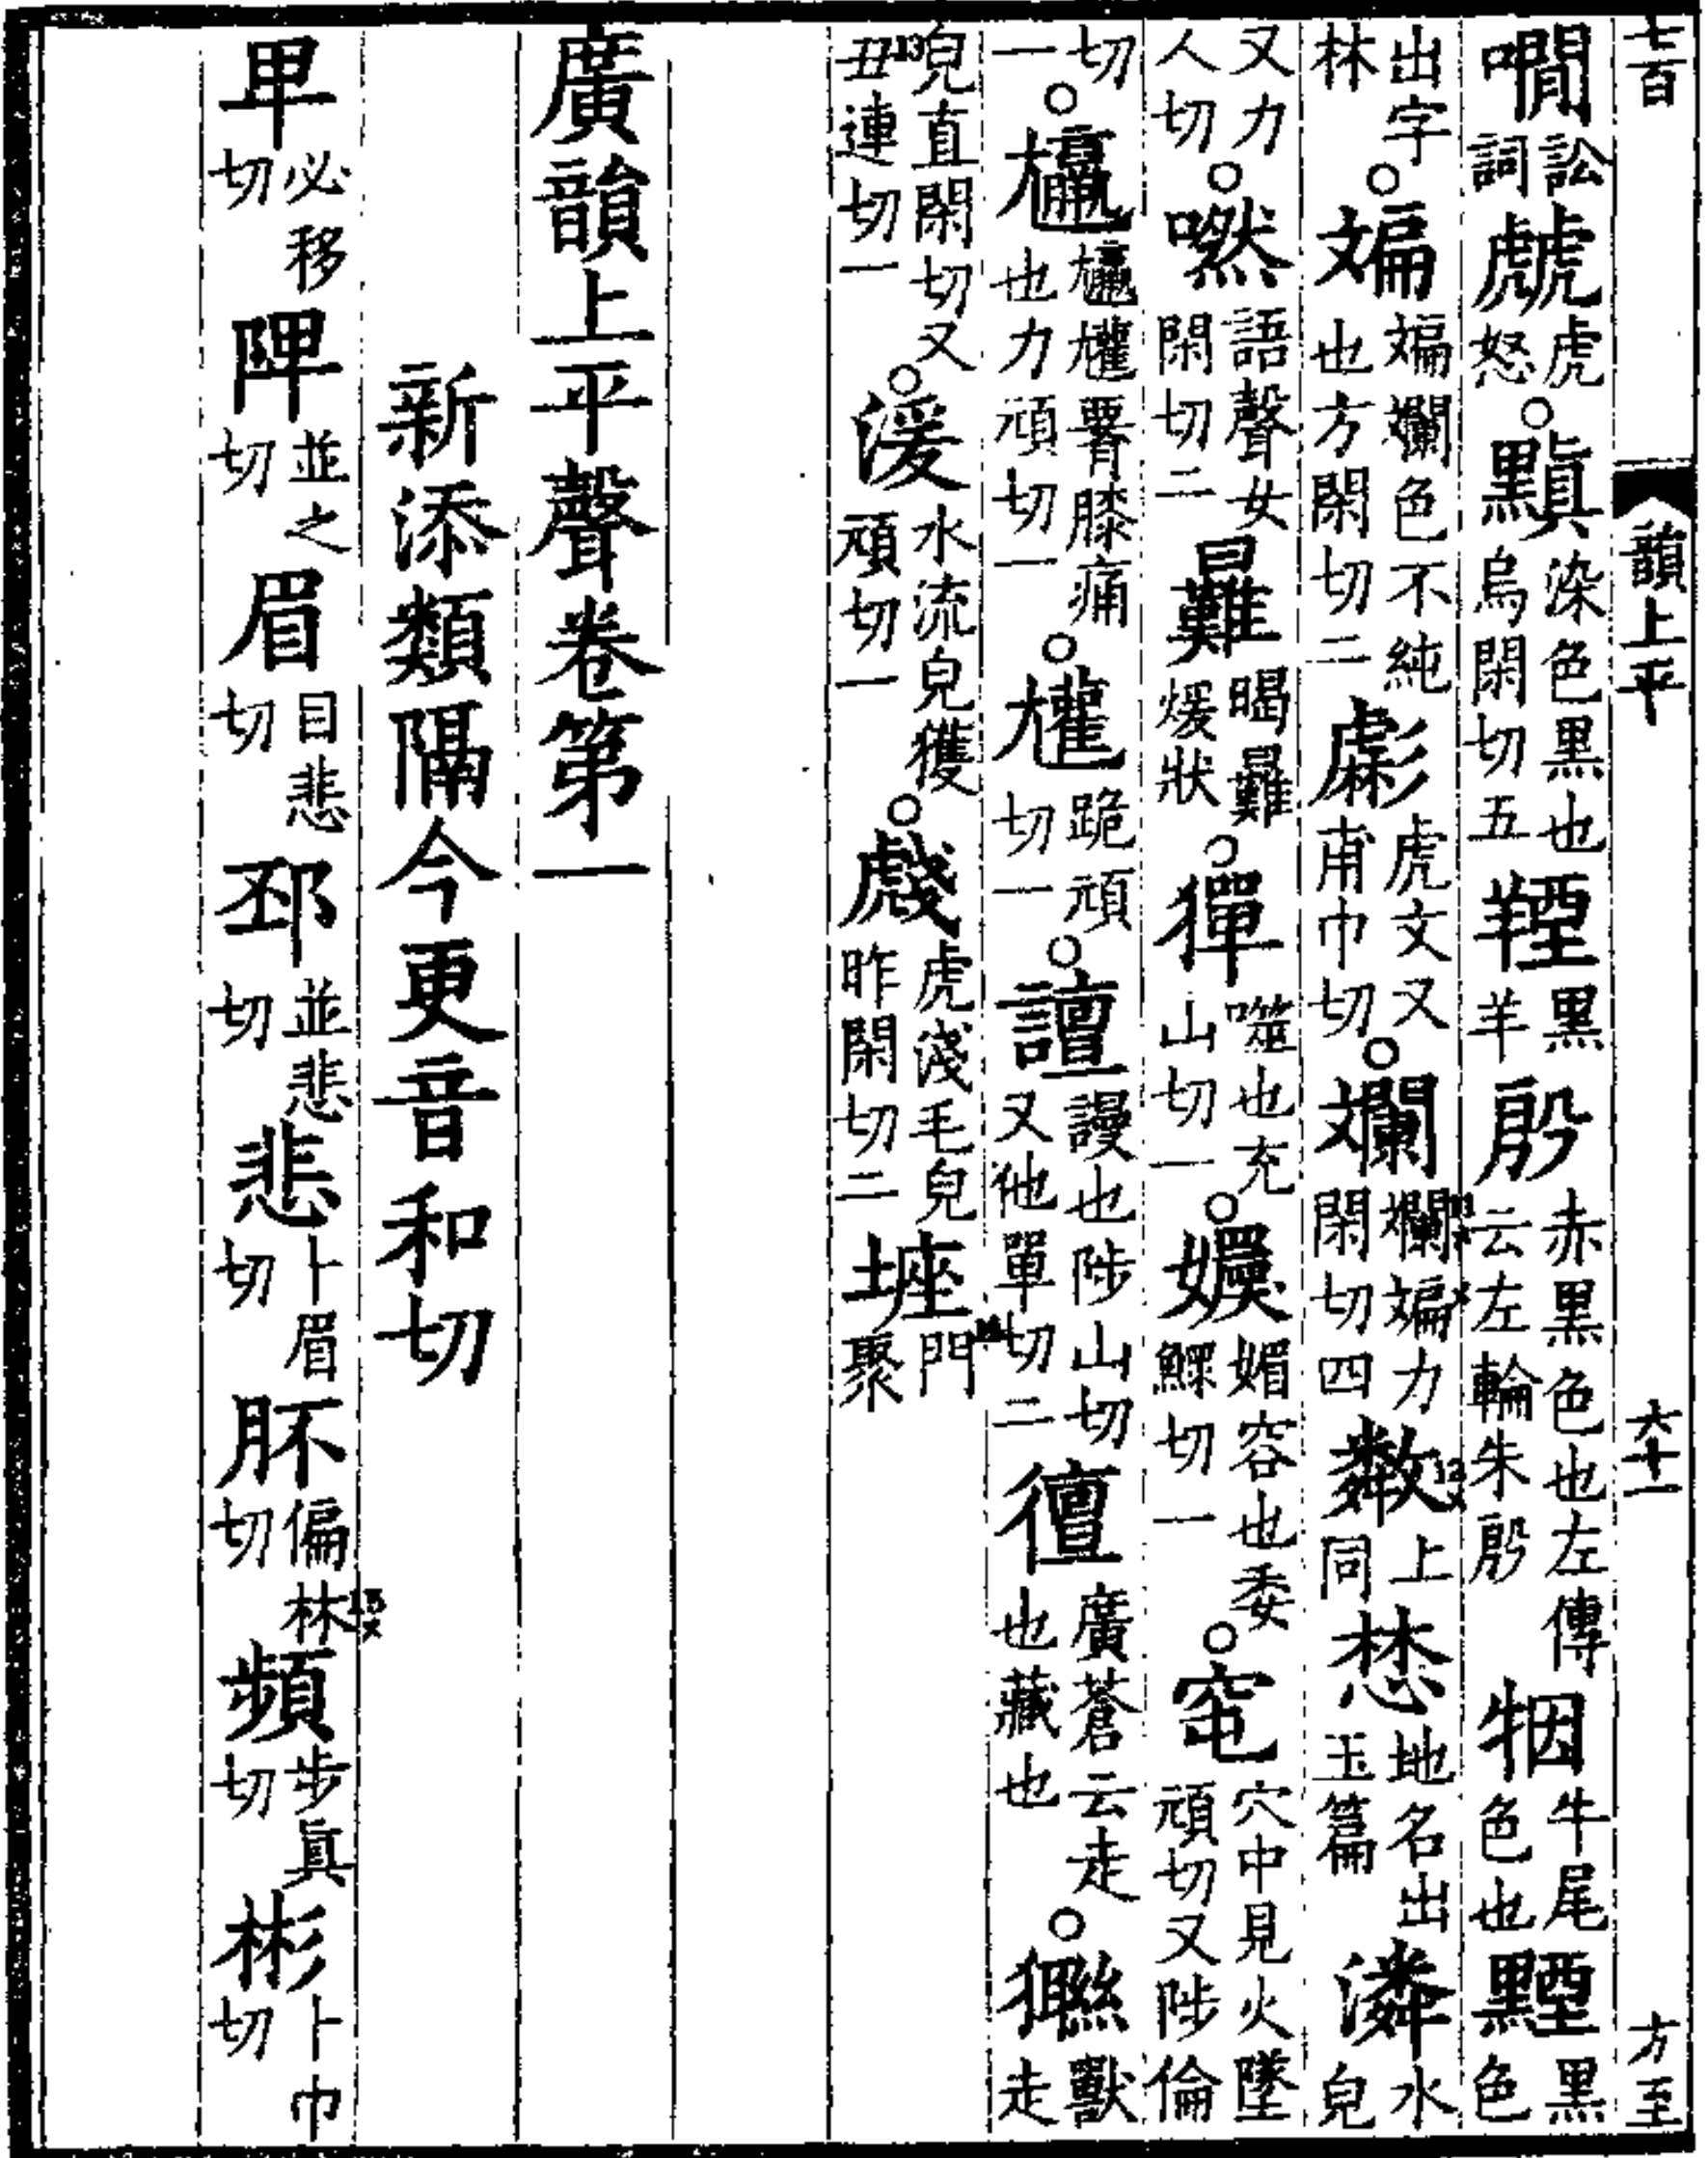 七百 韻上平 六十一 方至
㗴訟詞虥虎怒○黰染色黑也烏閑切五羥黑羊㱾赤黑色也左傳云左輪朱㱾牰牛尾色也黫黑色
出字林○斒斒斕色不純也方閑切二虨虎文又甫巾切○斕斕斒力閑切四㪻上同惏地名出玉篇潾水皃
又力人切○嘫語聲女閑切二㬮暍㬮煖狀○獋噬也充山切一○嬽媚容也委鰥切一○窀穴中見火墜頑切又陟倫
切○尷尷尵䐴膝痛一也力頑切一○尵跪頑切一○譠謾也陟山切又他單切二儃廣蒼云走也藏也○獑獸走
皃直閑切又丑連切一○湲水流皃獲頑切一○虥虎淺毛皃昨閑切二𡎺門聚
廣韻上平聲卷第一
新添類隔今更音和切
卑必移切陴並之切眉目悲切邳並悲切悲卜眉切肧偏林切頻步眞切彬卜巾切